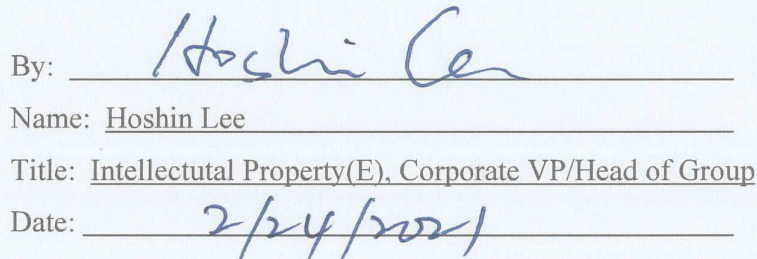 By: Hoshin Lee
Name: Hoshin Lee
Title: Intellectutal Property(E), Corporate VP/Head of Group
Date: 2/24/2021